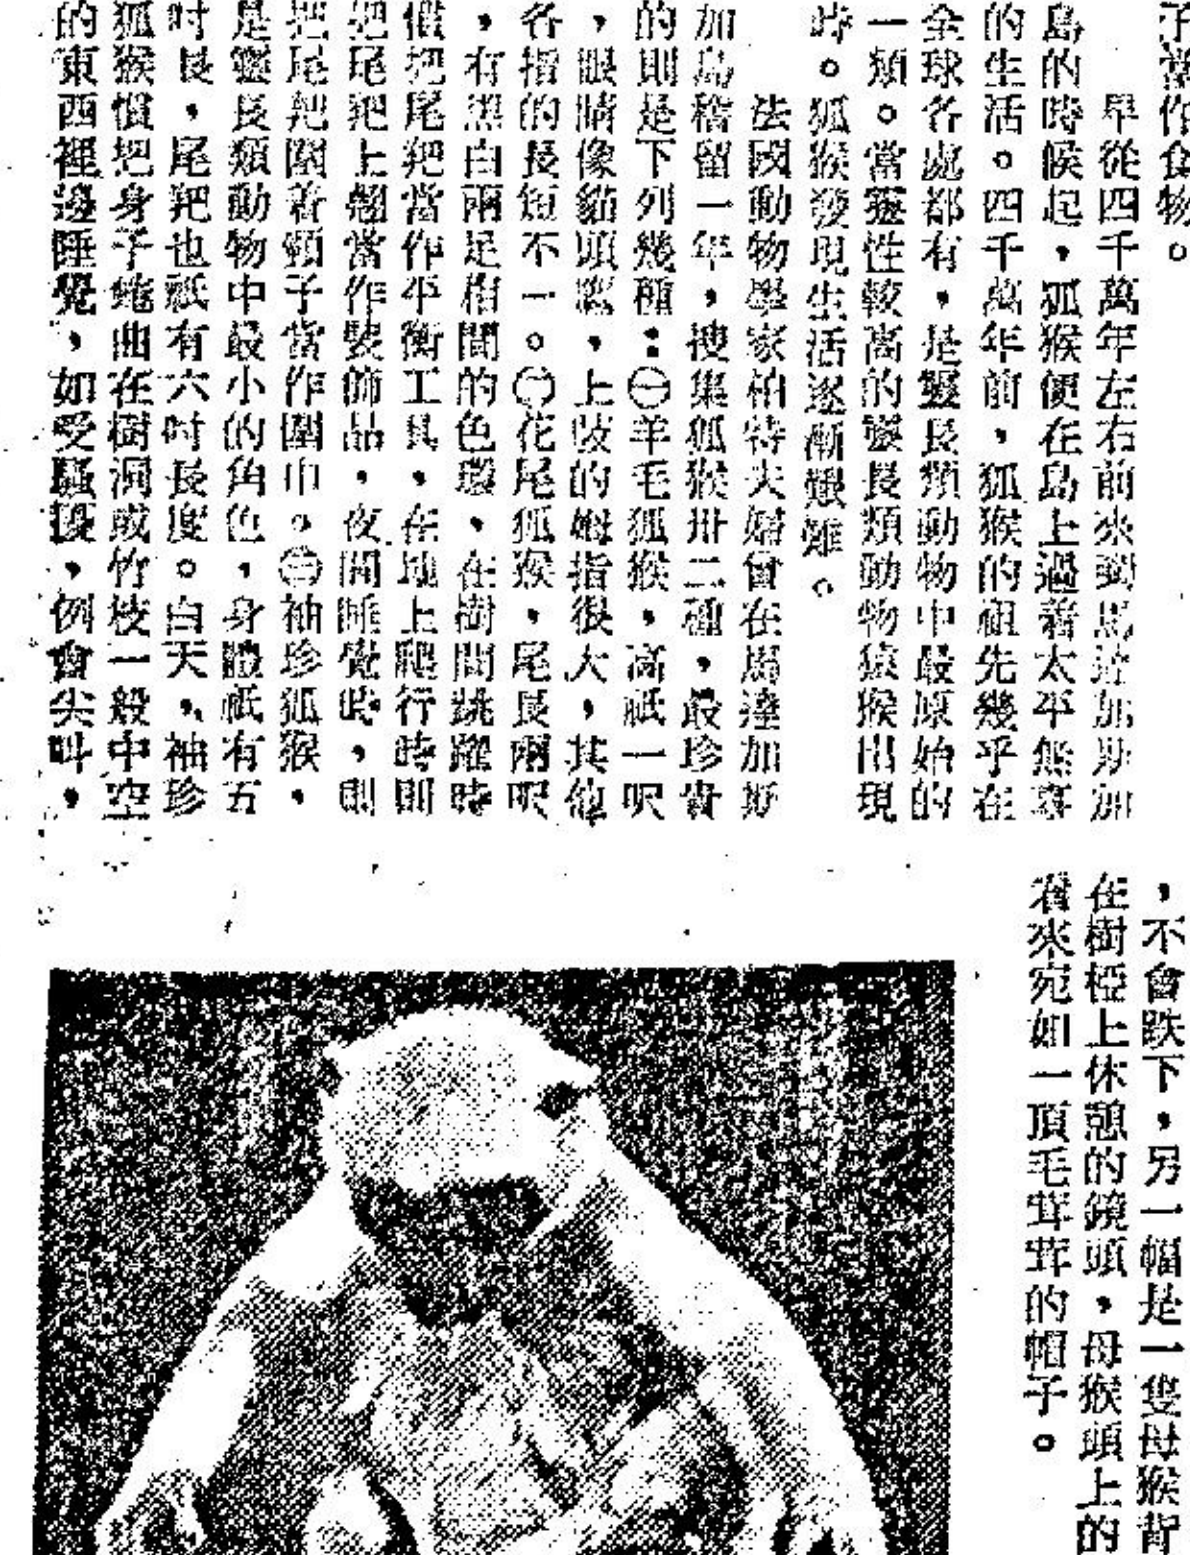 子當作食物。
早從四千萬年左右前來到馬達加斯加
島的時候起，狐猴便在島上過着太平無事
的生活。四千萬年前，狐猴的祖先幾乎在
全球各處都有，是靈長類動物中最原始的
一類。當靈性較高的靈長類動物猿猴出現
時。狐猴發現生活逐漸艱難。
法國動物學家柏特夫婦曾在馬達加斯
加島稽留一年，搜集狐猴卅二種，最珍貴
的則是下列幾種：㊀羊毛狐猴，高祇一呎
，眼睛像貓頭鷹，上肢的姆指很大，其他
各指的長短不一。㊁花尾狐猴，尾長兩呎
，有黑白兩足相間的色環，在樹間跳躍時
慣把尾把當作平衡工具，在地上爬行時則
把尾把上翹當作裝飾品，夜間睡覺時，則
把尾把圍着頸子當作圍巾。㊂袖珍狐猴，
是靈長類動物中最小的角色，身體祇有五
吋長，尾把也祇有六吋長度。白天，袖珍
狐猴慣把身子蜷曲在樹洞或竹枝一般中空
的東西裡邊睡覺，如受騷擾，例會尖叫，
，不會跌下，另一幅是一隻母猴背
在樹椏上休憩的鏡頭，母猴頭上的
看來宛如一頂毛茸茸的帽子。